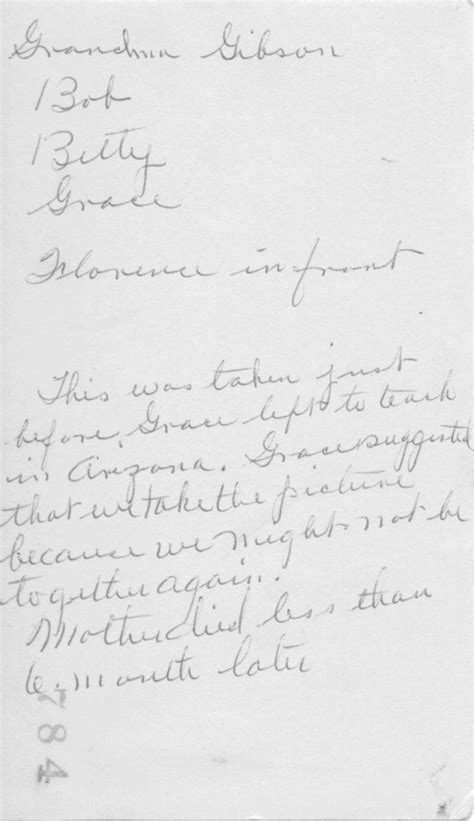 Grandma Gibson
Bob
Betty
Grace
Florence in front
This was taken just
before Grace left to teach
in Arizona. Grace suggested
that we take the picture
because we might not be
together again.
Mother died less than
6. month later
784